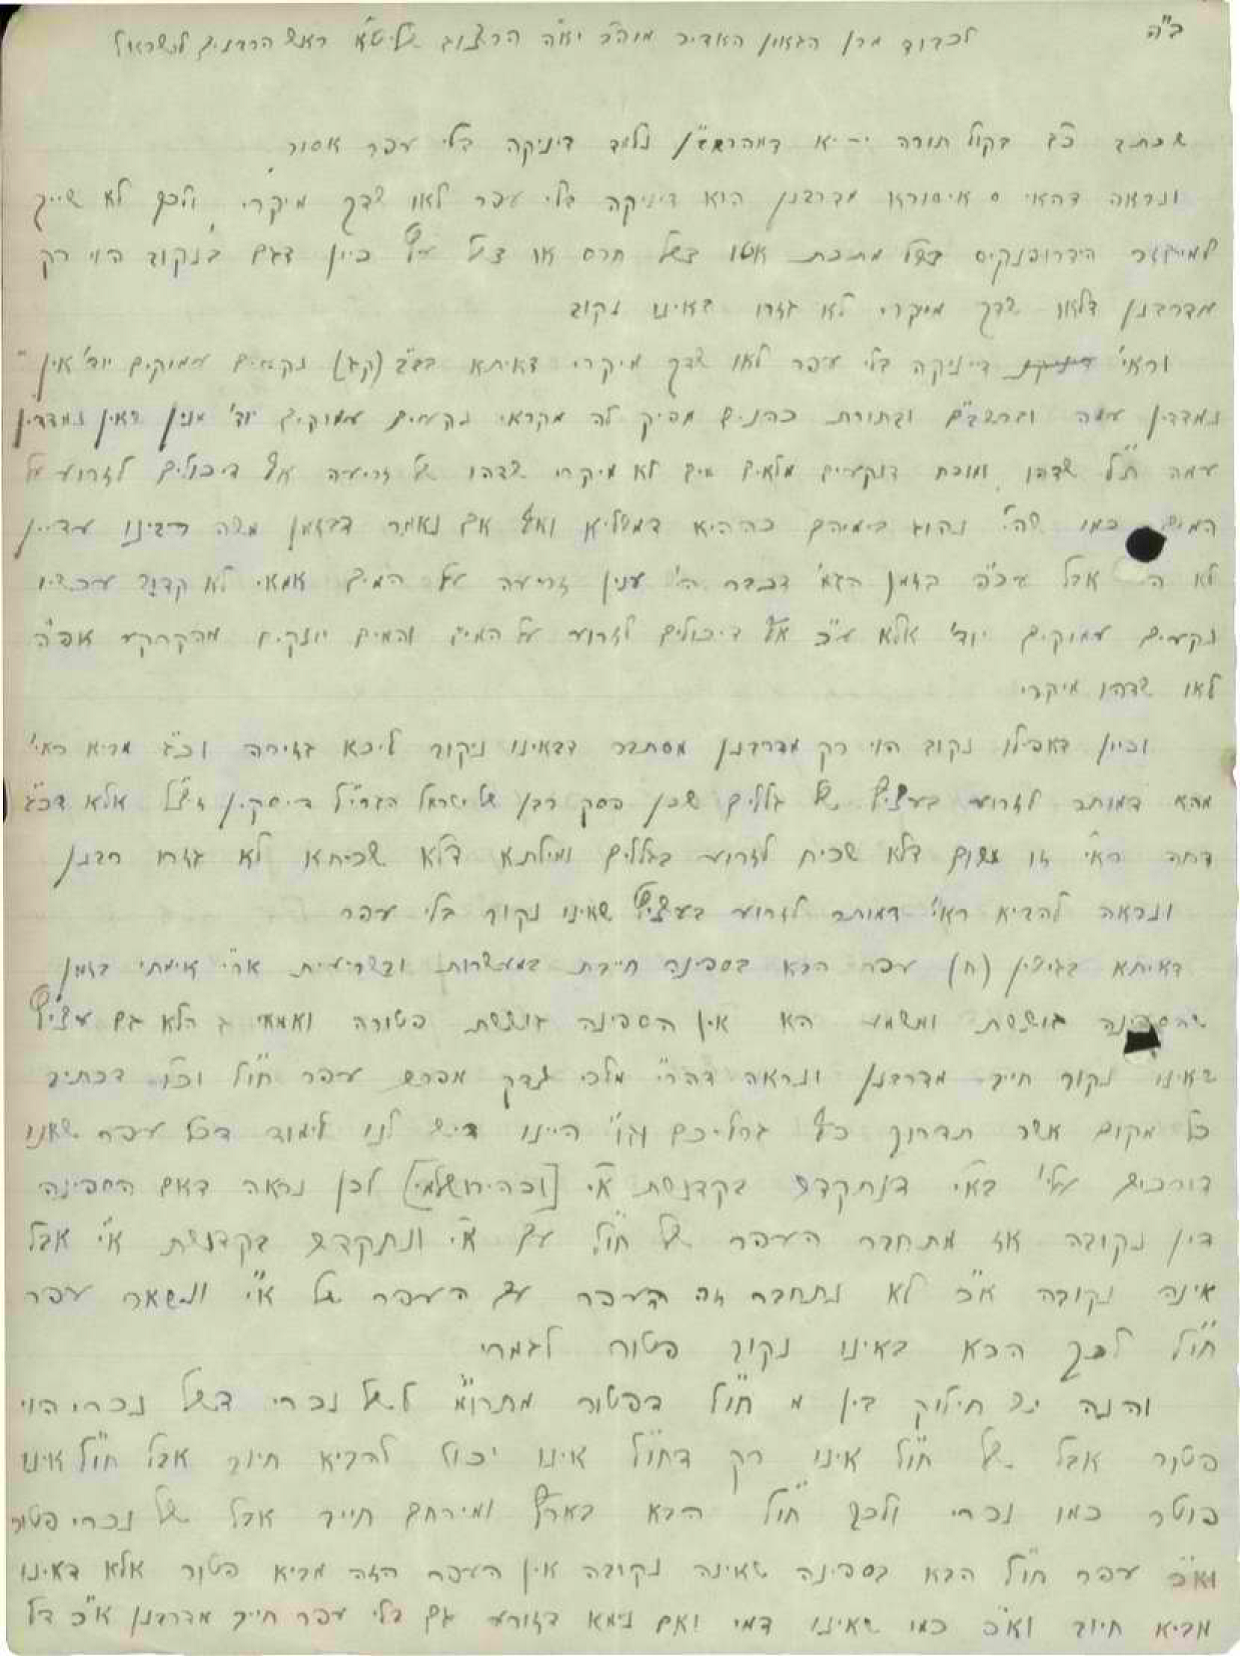 ב"ה
לכבוד מרן הגאון האדיר מוהר"ר יא"ה הרצוג שליט"א ראש הרבנים לישראל
שכתב כ"ג בקול תורה דמהרשב"ן נלמד דיניקה בלי עפר אסור
ונראה דהאי איסורא מדרבנן הוא דיניקה בלי עפר לאו שדך מיקרי ולכך לא שייך
למיגזר הידרופוניקס בשל מתכת אטו בשל חרס או בשל עץ כיון דגם בנקוב הוי רק
מדרבנן דלאו שדך מיקרי לא גזרו באינו נקוב
וראי' דיניקה בלי עפר לאו שדך מיקרי דאיתא בב"ב (קג) נקעים עמוקים יוד' אין
נמדדין עמה וברשב"ם ובתורת כהנים מפיק לה מקראי נקעים עמוקים יוד' מנין דאין נמדדין
עמה ת"ל שדהו ומוכח דנקעים מלאים מים לא מיקרי שדהו של זריעה אף דיכולים לזרוע על
המים כמו שהי' נהוג בימיהם כההיא דמטליא ואף אם נאמר דבזמן משה רבינו עדיין
לא ה' אבל עכ"פ בזמן הגמ' דכבר ה' ענין זריעה על המים אמאי לא קדוש עכשיו
נקעים עמוקים יוד' אלא ע"כ אף דיכולים לזרוע על המים והמים יונקים מהקרקע אפ"ה
לאו שדהו מיקרי
וכיון דאפילו נקוב הוי רק מדרבנן מסתבר דבאינו ניקוב ליכא גזירה וכ"ג מביא ראי'
מהא דמותר לזרוע בעציץ של גללים שכן פסק רבן של ישראל הגרי"ל דיסקין זצ"ל אלא דכ"ג
דחה ראי' זו משום דלא שכיח לזרוע בגללים ומילתא דלא שכיחא לא גזרו רבנן
ונראה להביא ראי' דמותר לזרוע בעציץ שאינו נקוב בלי עפר
דאיתא בגיטין (ח) עפר הבא בספינה חייבת במעשרות ובשביעית אר"י אימתי בזמן
שהספינה גוששת ומשמע הא אין הספינה גוששת פטורה ואמאי הלא גם עציץ
שאינו נקוב חייב מדרבנן ונראה דהר"י מלכי צדק מפרש עפר חו"ל וכו' דכתיב
כל מקום אשר תדרוך כף רגליכם וגו' היינו דיש לנו לימוד דכל עפר שאנו
דורכים עלי' בא"י דנתקדש בקדושת א"י [ובהירושלמי] לכן נראה דאם הספינה
דין נקובה אז מתחבר העפר של חו"ל עם א"י ונתקדש בקדושת א"י אבל
אינה נקובה א"כ לא נתחבר זה העפר עם העפר של א"י ונשאר עפר
חו"ל לכך הבא באינו נקוב פטור לגמרי
והנה יש חילוק בין חו"ל דפטור מתרו"מ לשל נכרי דשל נכרי הוי
פטור אבל של חו"ל אינו רק דחו"ל אינו יכול להביא חיוב אבל חו"ל אינו
פוטר כמו נכרי ולכך חו"ל הבא בארץ ומירחם חייב אבל של נכרי פטור
וא"כ עפר חו"ל הבא בספינה שאינה נקובה אין העפר הזה מביא פטור אלא דאינו
מביא חיוב וא"כ כמי שאינו דמי ואם נימא דזורע גם בלי עפר חייב מדרבנן א"כ דל